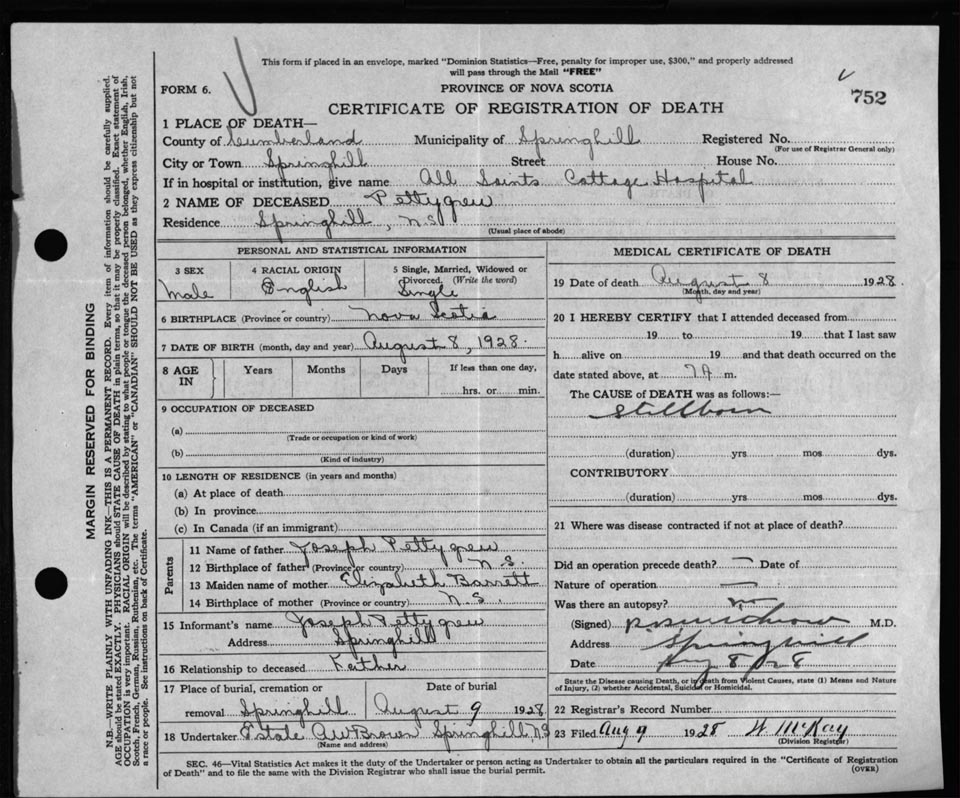 This form if placed in an envelope, marked "Dominion Statistics—Free, penalty for improper use, $300," and properly addressed
will pass through the Mail "FREE"
FORM 6.
PROVINCE OF NOVA SCOTIA
752
CERTIFICATE OF REGISTRATION OF DEATH
1 PLACE OF DEATH—
County of Cumberland Municipality of Springhill Registered No.
(For use of Registrar General only)
City or Town Springhill Street House No.
If in hospital or institution, give name All Saints Cottage Hospital
2 NAME OF DECEASED Pettygrew
Residence Springhill, N.S.
(Usual place of abode)
PERSONAL AND STATISTICAL INFORMATION
3 SEX 4 RACIAL ORIGIN 5 Single, Married, Widowed or
Divorced. (Write the word)
Male English Single
6 BIRTHPLACE (Province or country) Nova Scotia
7 DATE OF BIRTH (month, day and year) August 8, 1928.
8 AGE IN Years Months Days If less than one day,
hrs. or min.
9 OCCUPATION OF DECEASED
(a)
(Trade or occupation or kind of work)
(b)
(Kind of industry)
10 LENGTH OF RESIDENCE (in years and months)
(a) At place of death
(b) In province
(c) In Canada (if an immigrant)
Parents
11 Name of father Joseph Pettygrew
12 Birthplace of father (Province or country) N.S.
13 Maiden name of mother Elizabeth Barrett
14 Birthplace of mother (Province or country) N.S.
15 Informant's name Joseph Pettygrew
Address Springhill
16 Relationship to deceased Father
17 Place of burial, cremation or Date of burial
removal Springhill August 9 1928
18 Undertaker Estate AW Brown Springhill N.S
(Name and address)
MEDICAL CERTIFICATE OF DEATH
19 Date of death August 8 1928
(Month, day and year)
20 I HEREBY CERTIFY that I attended deceased from
19 to 19 that I last saw
h alive on 19 and that death occurred on the
date stated above, at 7A m.
The CAUSE of DEATH was as follows:—
Stillborn
(duration) yrs mos dys.
CONTRIBUTORY
(duration) yrs mos dys.
21 Where was disease contracted if not at place of death?
Did an operation precede death? — Date of
Nature of operation —
Was there an autopsy?
(Signed) M.D.
Address Springhill
Date Aug 8 28
State the Disease causing Death, or in death from Violent Causes, state (1) Means and Nature
of Injury, (2) whether Accidental, Suicidal or Homicidal.
22 Registrar's Record Number
23 Filed Aug 9 1928 W McKay
(Division Registrar)
SEC. 46—Vital Statistics Act makes it the duty of the Undertaker or person acting as Undertaker to obtain all the particulars required in the "Certificate of Registration
of Death" and to file the same with the Division Registrar who shall issue the burial permit. (OVER)
MARGIN RESERVED FOR BINDING
N.B.—WRITE PLAINLY WITH UNFADING INK—THIS IS A PERMANENT RECORD. Every item of information should be carefully supplied.
AGE should be stated EXACTLY. PHYSICIANS should STATE CAUSE OF DEATH in plain terms, so that it may be properly classified. Exact statement of
OCCUPATION is very important. RACIAL ORIGIN will be described by stating to what people or tongue the deceased person belonged, whether English, Irish,
Scotch, French, German, Russian, Ruthenian, etc. The terms "AMERICAN" or "CANADIAN" SHOULD NOT BE USED as they express citizenship but not
a race or people. See instructions on back of Certificate.